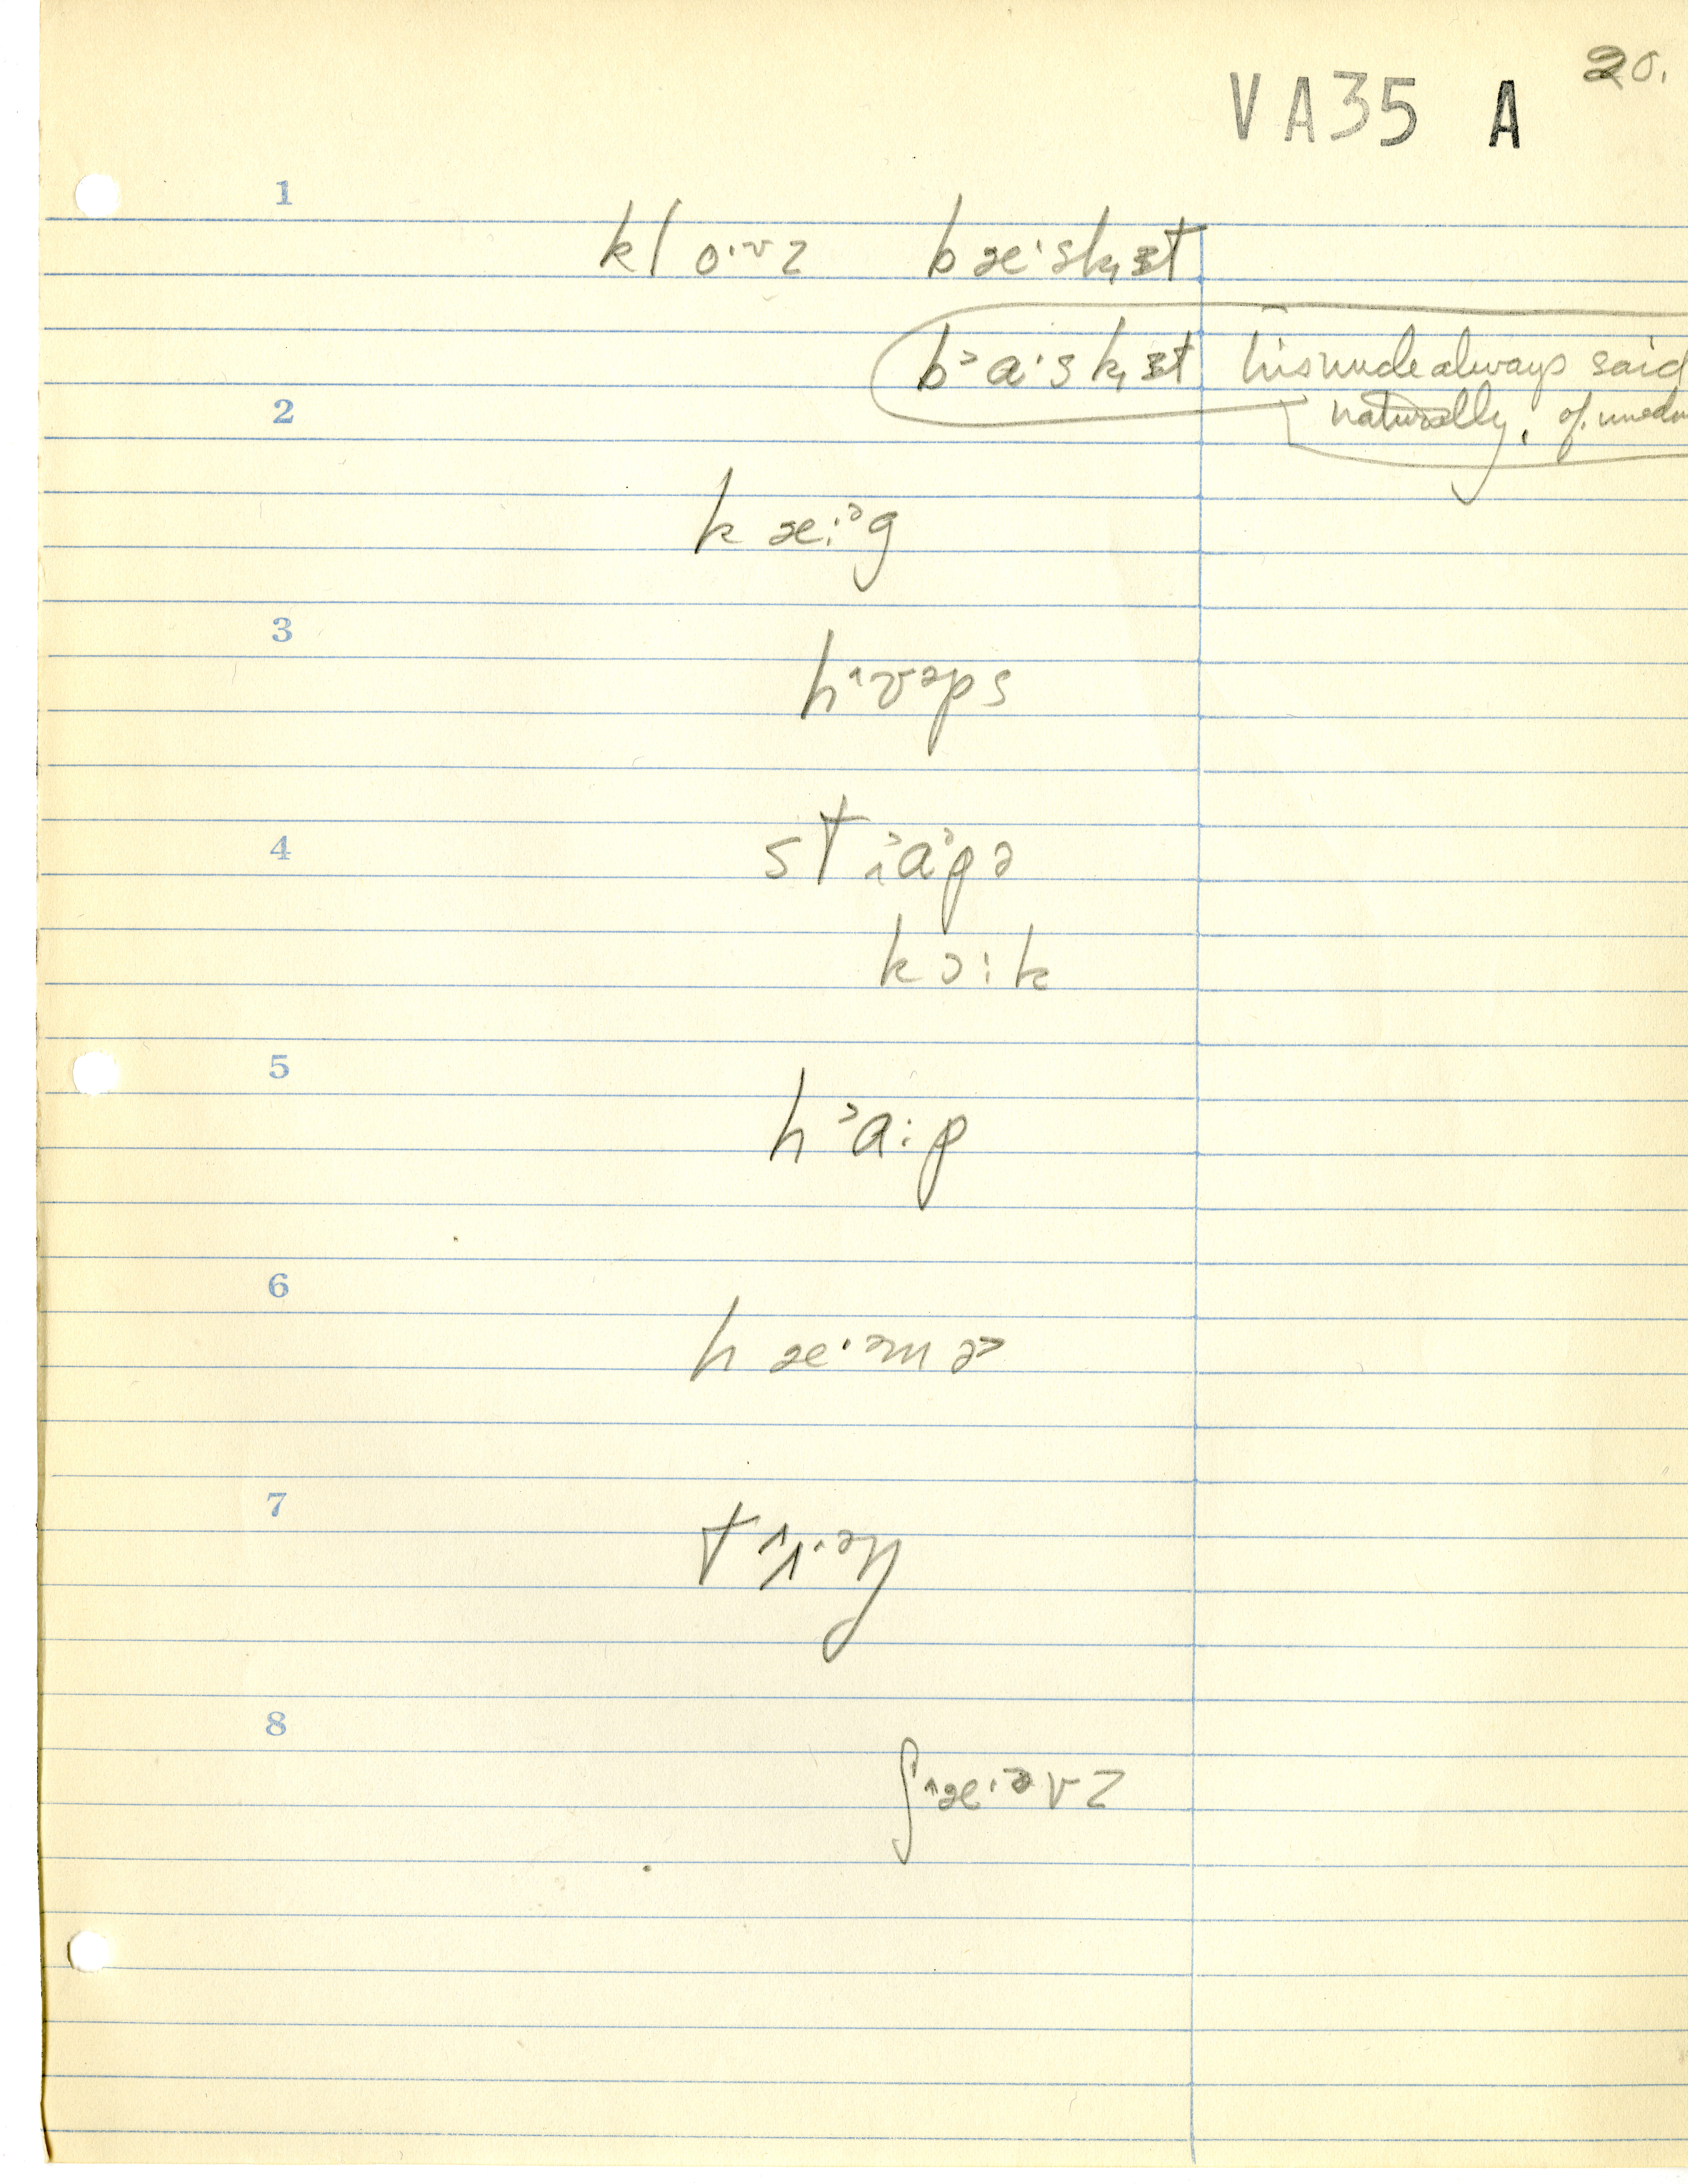 20.
VA35 A
1
klo·ᶷz bæ·sk₁ɜt
bᵓa·sk₁ɜt his uncle always said
2
naturally, of
kæ:ᵊg
3
h^ʊᵊps
4
stᴧᵓaᵓpə
kɔ:k
5
hᵓa:p
6
hæ·ᵊmə>
7
8
ʃ^æ·ᵊvz